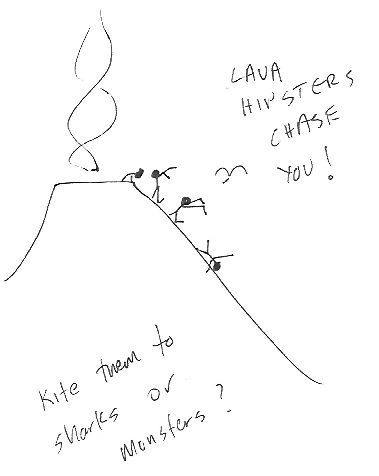 LAVA
HIPSTERS
CHASE
YOU!
Kite them to
sharks or
monsters?